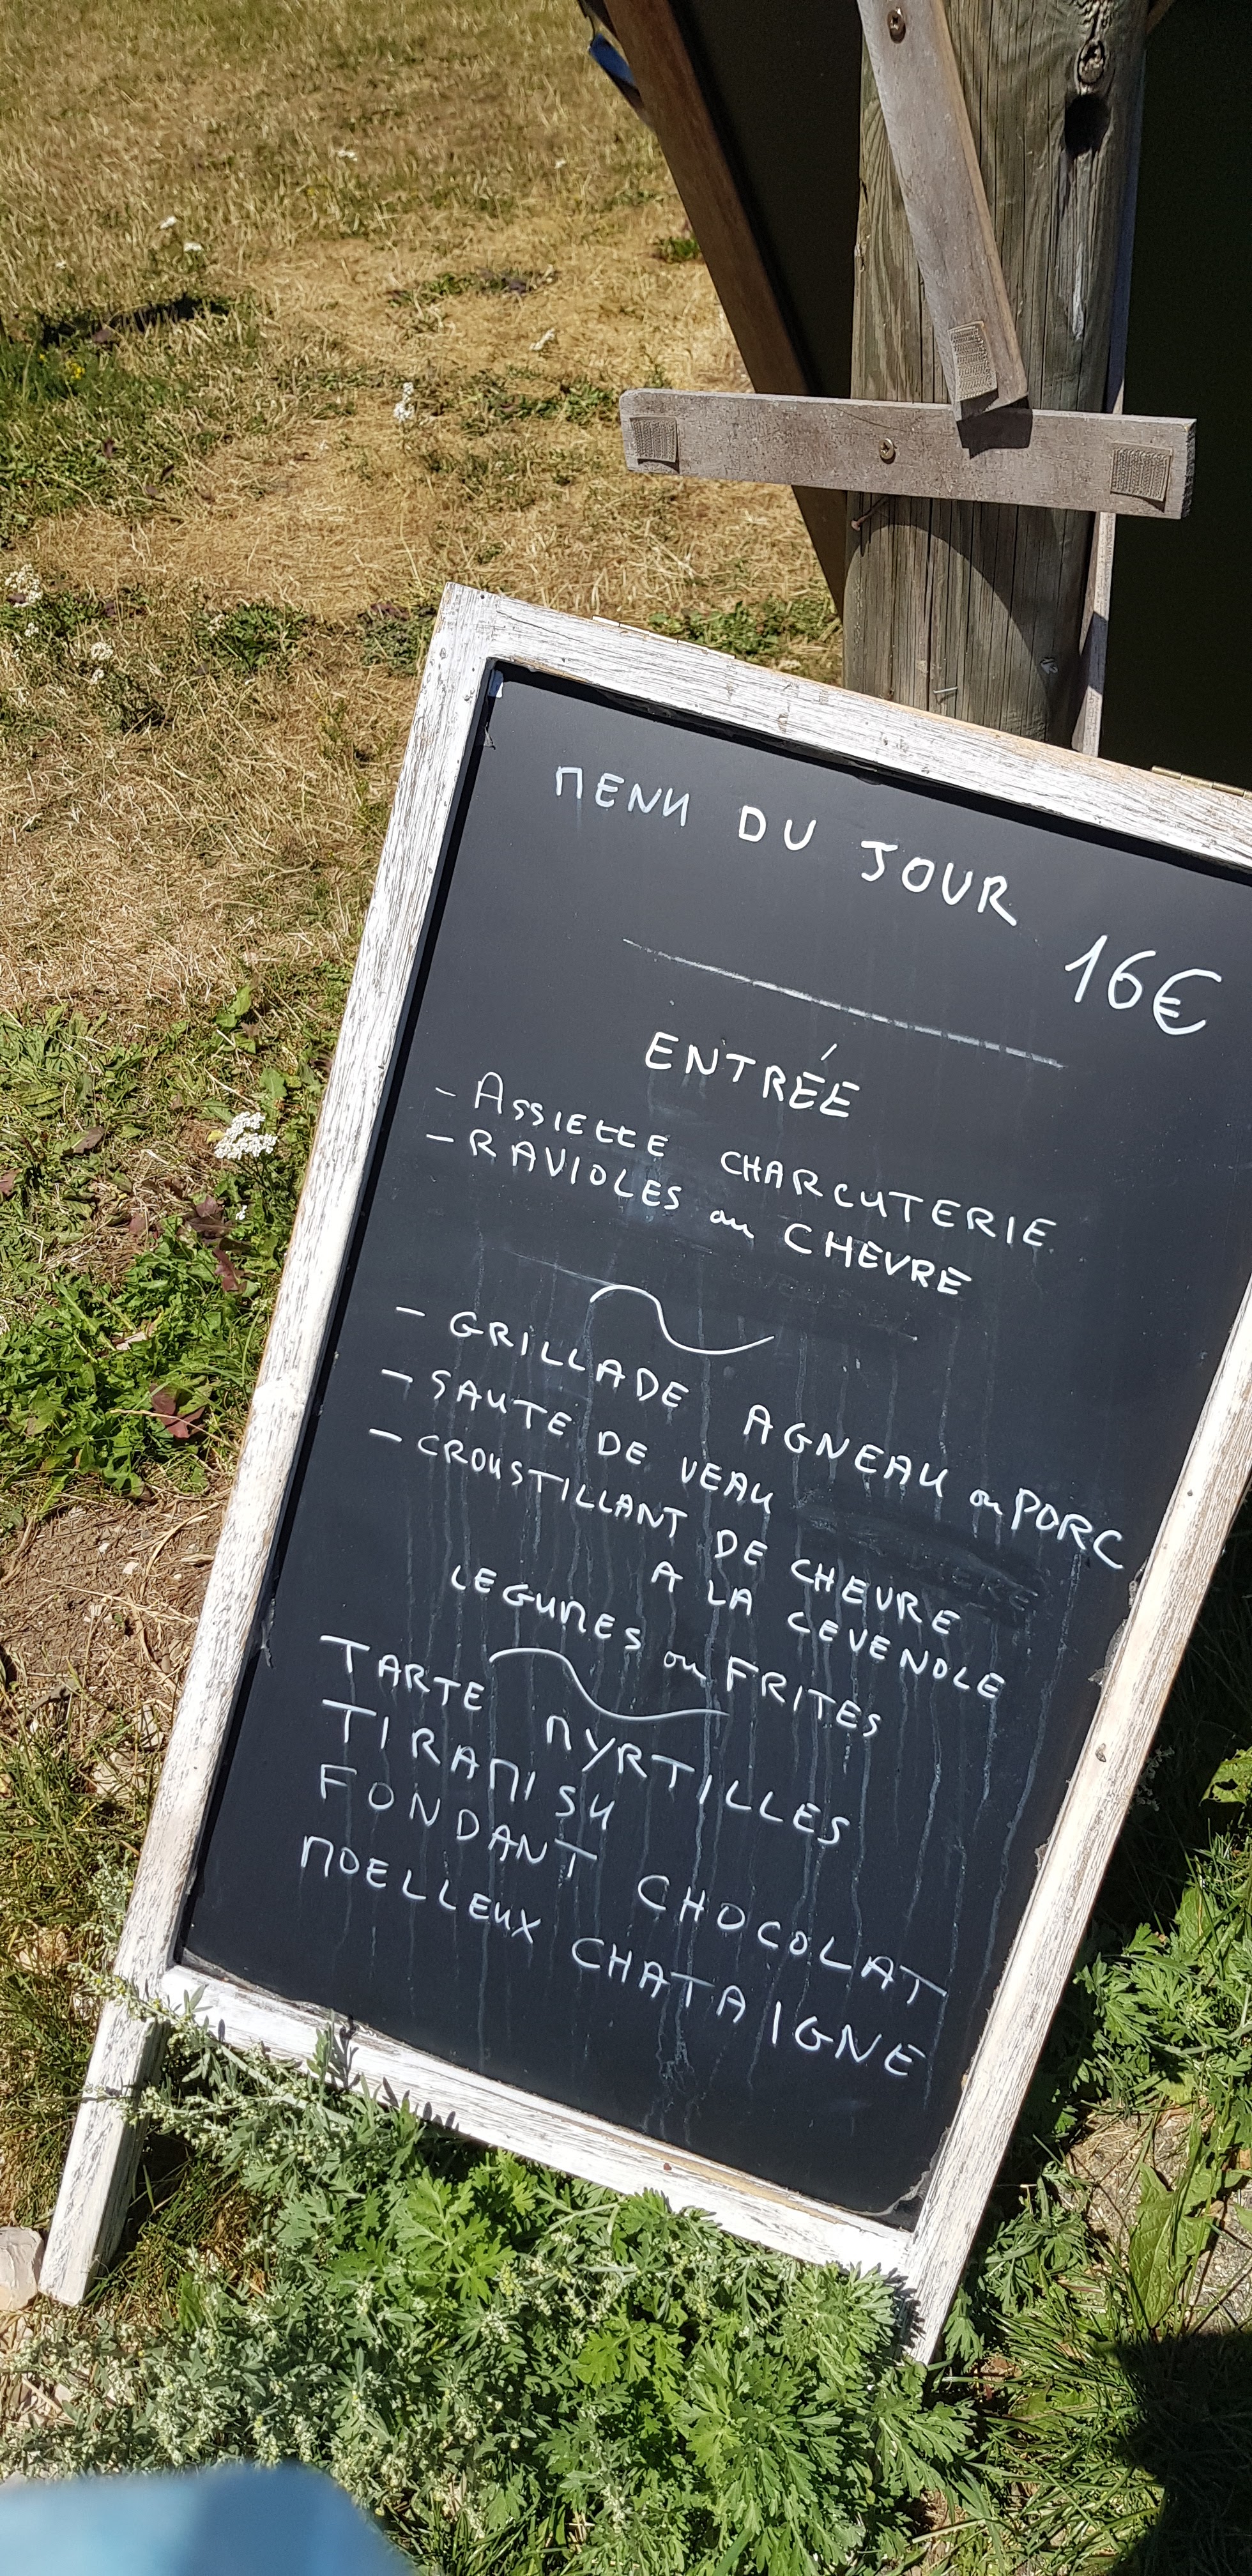 MENU DU JOUR
16€
ENTRÉE
- ASSIETTE CHARCUTERIE
- RAVIOLES au CHEVRE
- GRILLADE AGNEAU ou PORC
- SAUTE DE VEAU
- CROUSTILLANT DE CHEVRE
A LA CEVENOLE
LEGUMES ou FRITES
TARTE MYRTILLES
TIRAMISU
FONDANT CHOCOLAT
MOELLEUX CHATAIGNE